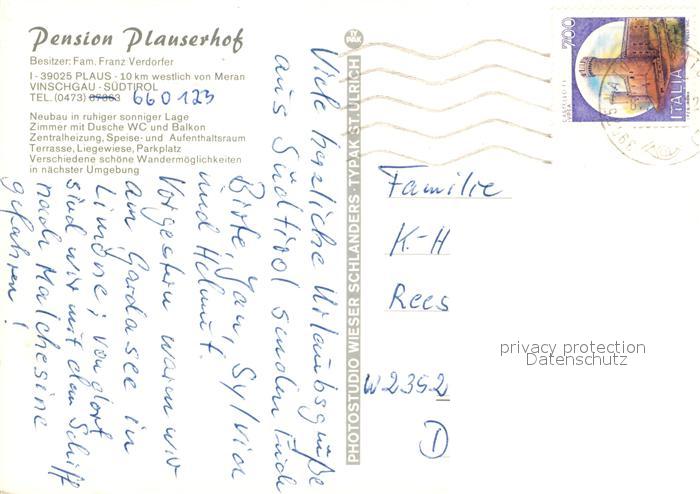 Pension Plauserhof
Besitzer: Fam. Franz Verdorfer
I - 39025 PLAUS - 10 km westlich von Meran
VINSCHGAU - SÜDTIROL
TEL. (0473) 660123
Neubau in ruhiger sonniger Lage
Zimmer mit Dusche WC und Balkon
Zentralheizung, Speise- und Aufenthaltsraum
Terrasse, Liegewiese, Parkplatz
Verschiedene schöne Wandermöglichkeiten
in nächster Umgebung
Viele herzliche Urlaubsgrüße
aus Südtirol senden Euch
Birte, Jan, Sylvia
und Helmut.
Vorgestern waren wir
am Gardasee in
Limone; von dort
sind wir mit dem Schiff
nach Malchesine
gefahren!
PHOTOSTUDIO WIESER SCHLANDERS - TYPAK ST. ULRICH
TY
PAK
700
ITALIA
Familie
K.-H
Rees
W 2352
D
privacy protection
Datenschutz